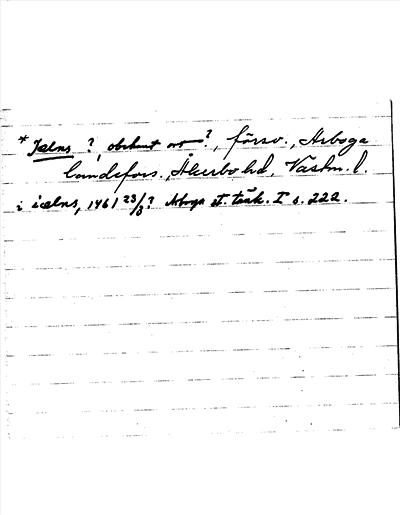 * Jælns ?, obekant ort ?, försv., Arboga
landsförs., Åkerbo hd, Västm. l.
i iælns, 1461 23/3? Arboga st. tänk. I s. 222.